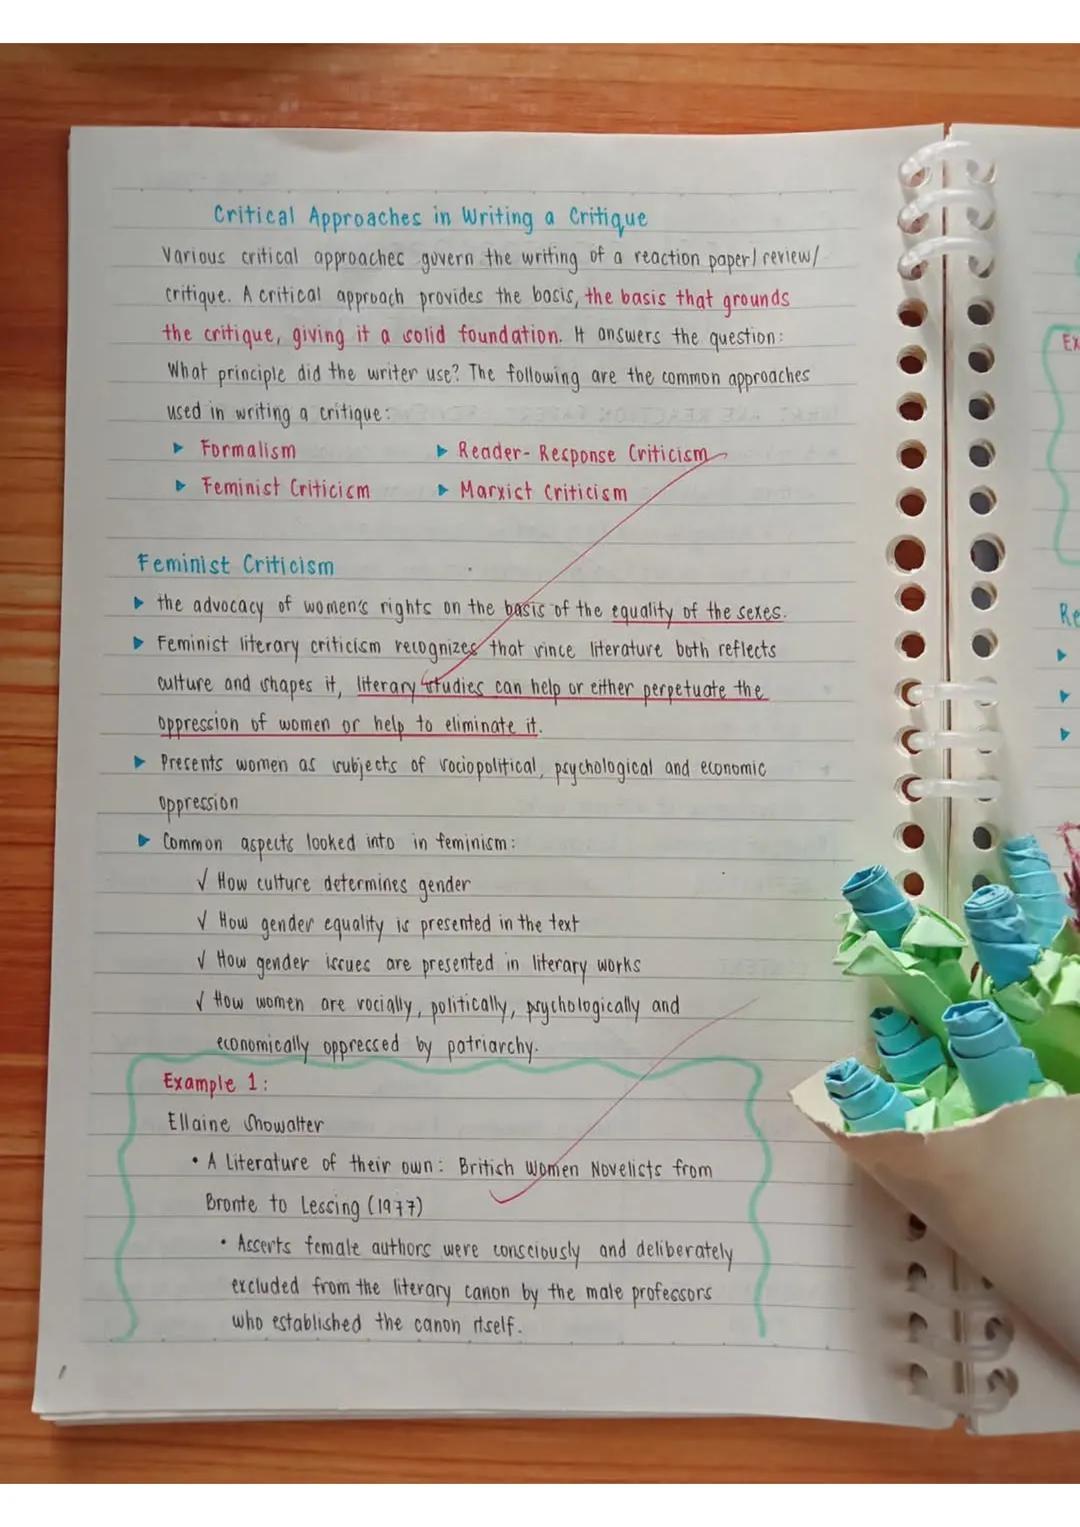 Critical Approaches in Writing a Critique
Various critical approaches govern the writing of a reaction paper/ review/
critique. A critical approach provides the basis, the basis that grounds
the critique, giving it a solid foundation. It answers the question:
What principle did the writer use? The following are the common approaches
used in writing a critique:
▸ Formalism ▸ Reader-Response Criticism
▸ Feminist Criticism ▸ Marxist Criticism
Feminist Criticism
▸ the advocacy of women's rights on the basis of the equality of the sexes.
▸ Feminist literary criticism recognizes that since literature both reflects
culture and shapes it, literary studies can help or either perpetuate the
oppression of women or help to eliminate it.
▸ Presents women as subjects of sociopolitical, psychological and economic
oppression
▸ Common aspects looked into in feminism:
√ How culture determines gender
√ How gender equality is presented in the text
√ How gender issues are presented in literary works
√ How women are socially, politically, psychologically and
economically oppressed by patriarchy.
Example 1:
Ellaine Showalter
• A Literature of their own: British Women Novelists from
Bronte to Lessing (1977)
• Asserts female authors were consciously and deliberately
excluded from the literary canon by the male professors
who established the canon itself.
Ex
Re